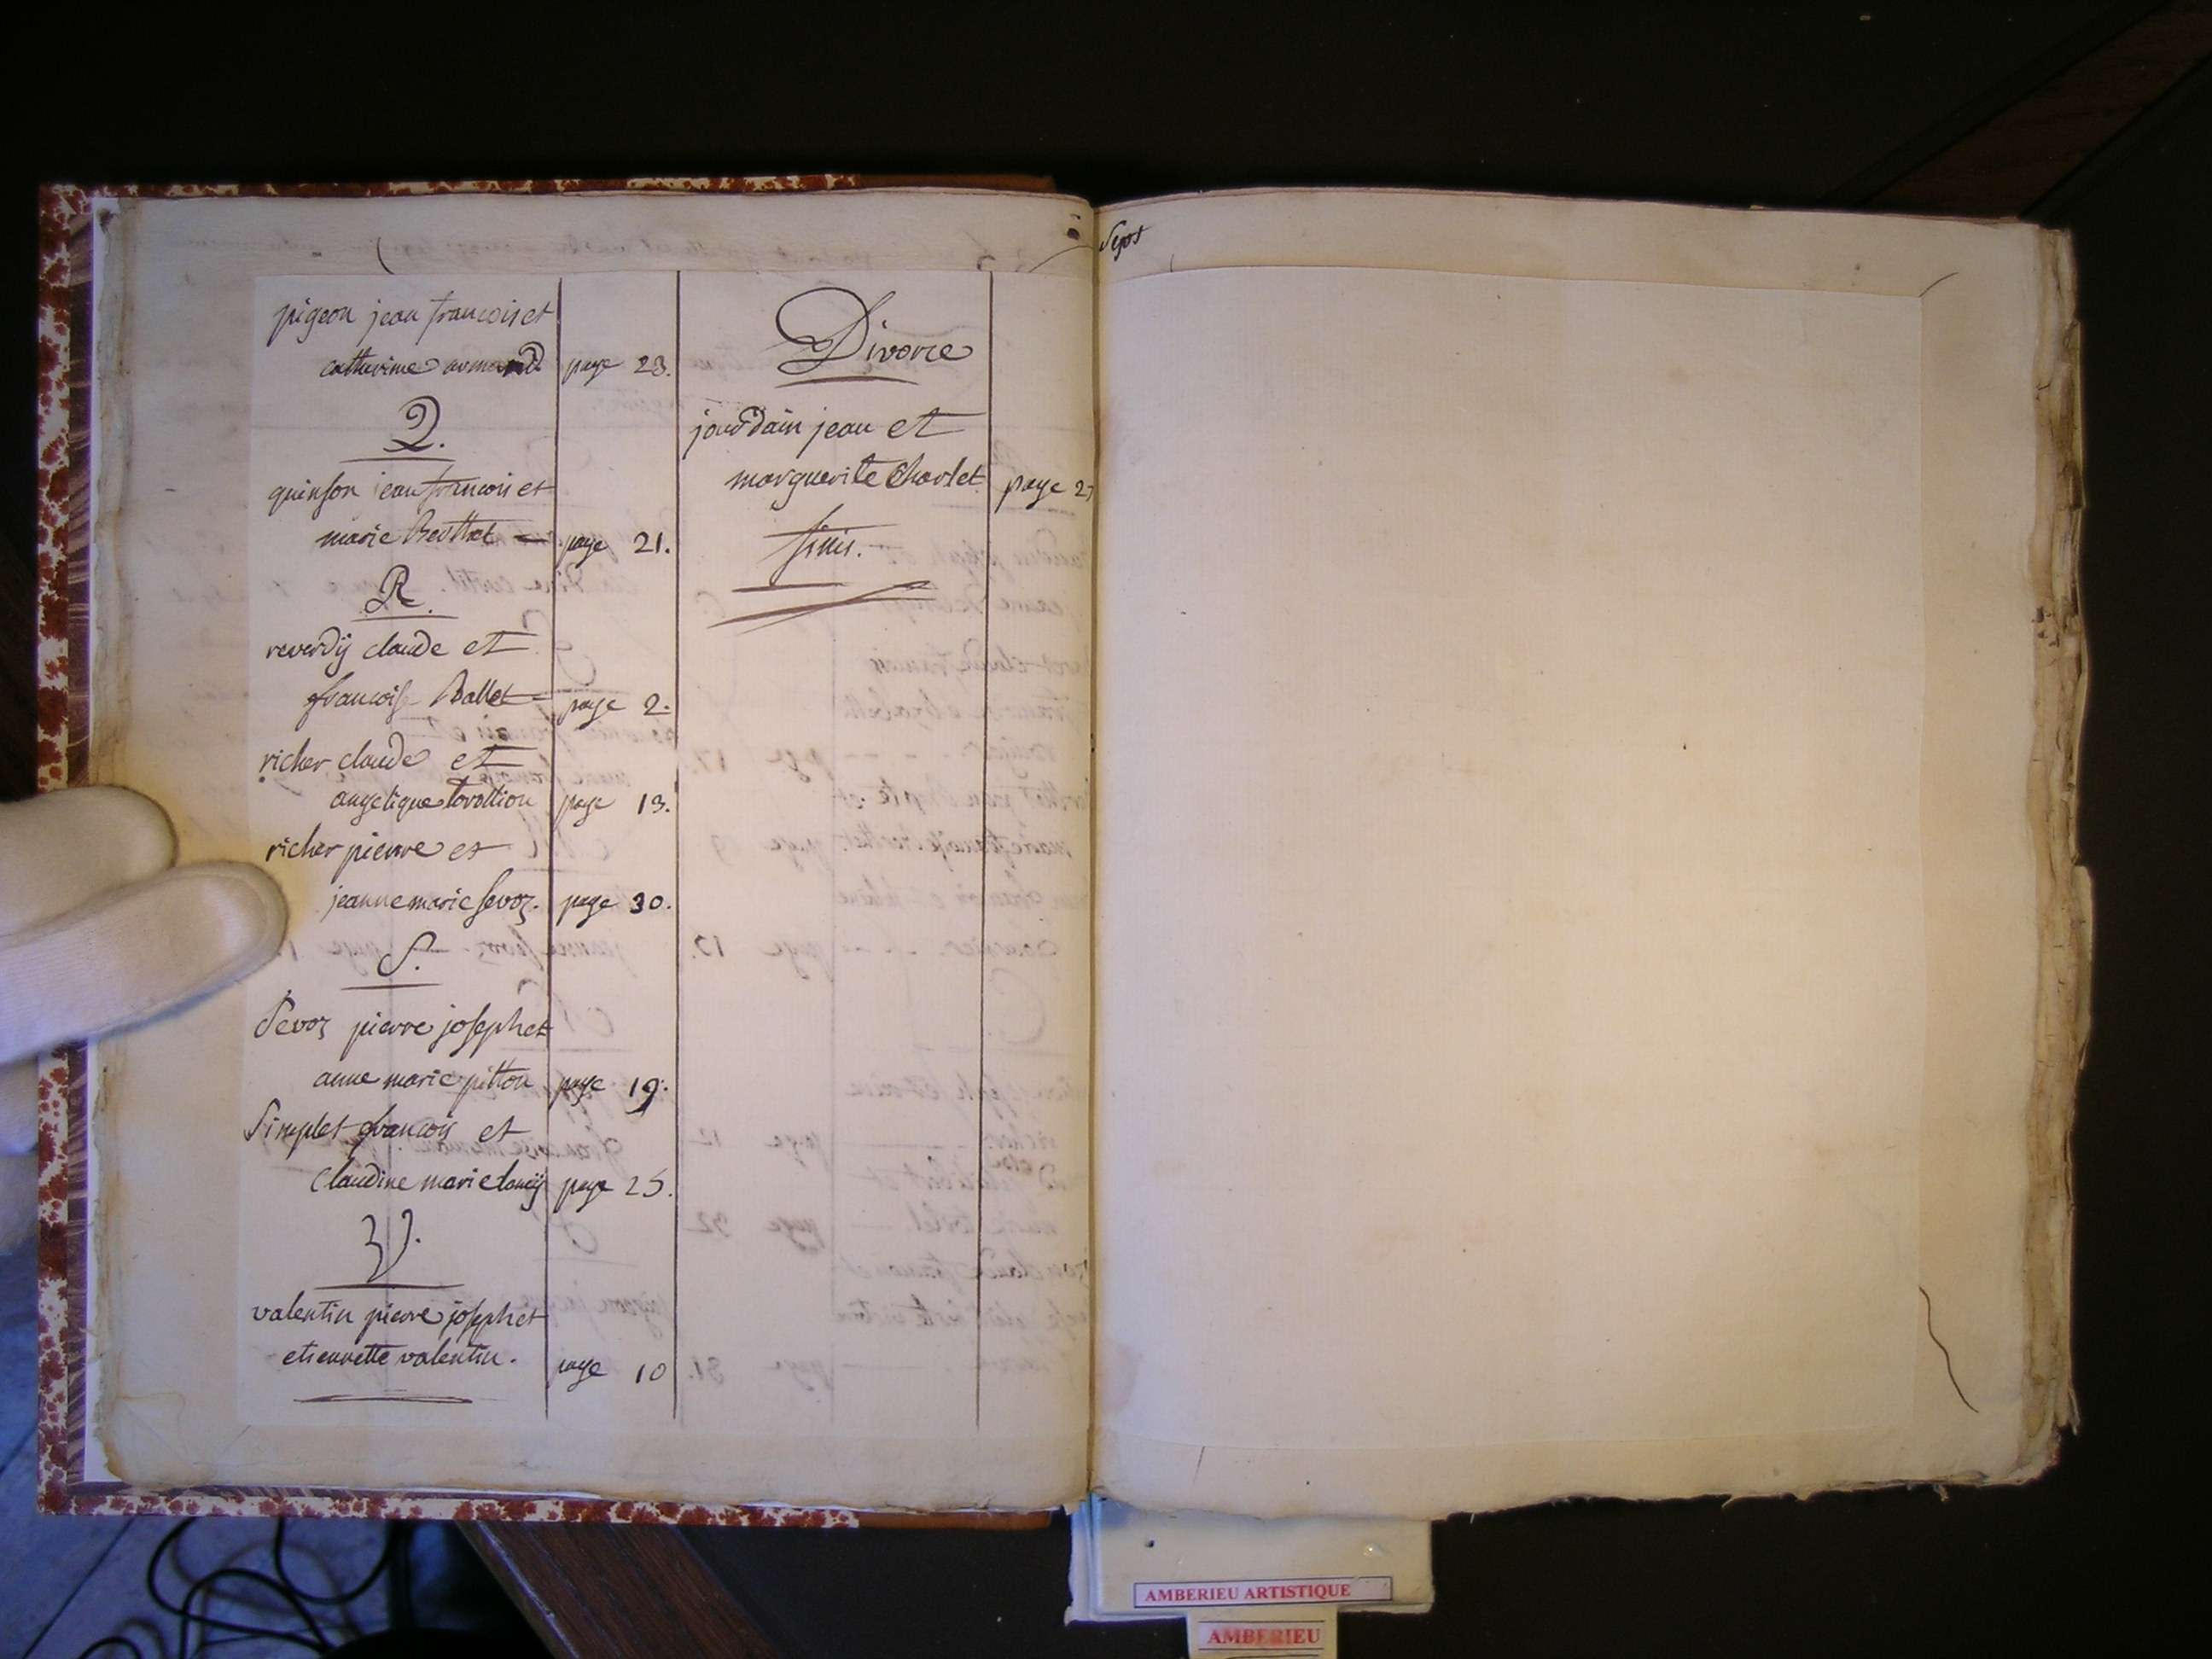 pigeon jean francois et
catherine armand page 23.
Q.
quinson jean francois et
marie Berthet page 21.
R.
reverdÿ claude et
francoise Ballet page 2.
richer claude et
angelique page 13.
richer pierre et
jeanne marie Sevoz. page 30.
S.
Sevoz pierre joseph et
anne marie pitton page 19.
Simplet francois et
Claudine marie page 25.
V.
valentin pierre joseph et
etiennette valentin. page 10
Divorce
jourdain jean et
marguerite Charlet page
finis.
Sept
AMBERIEU ARTISTIQUE
AMBERIEU